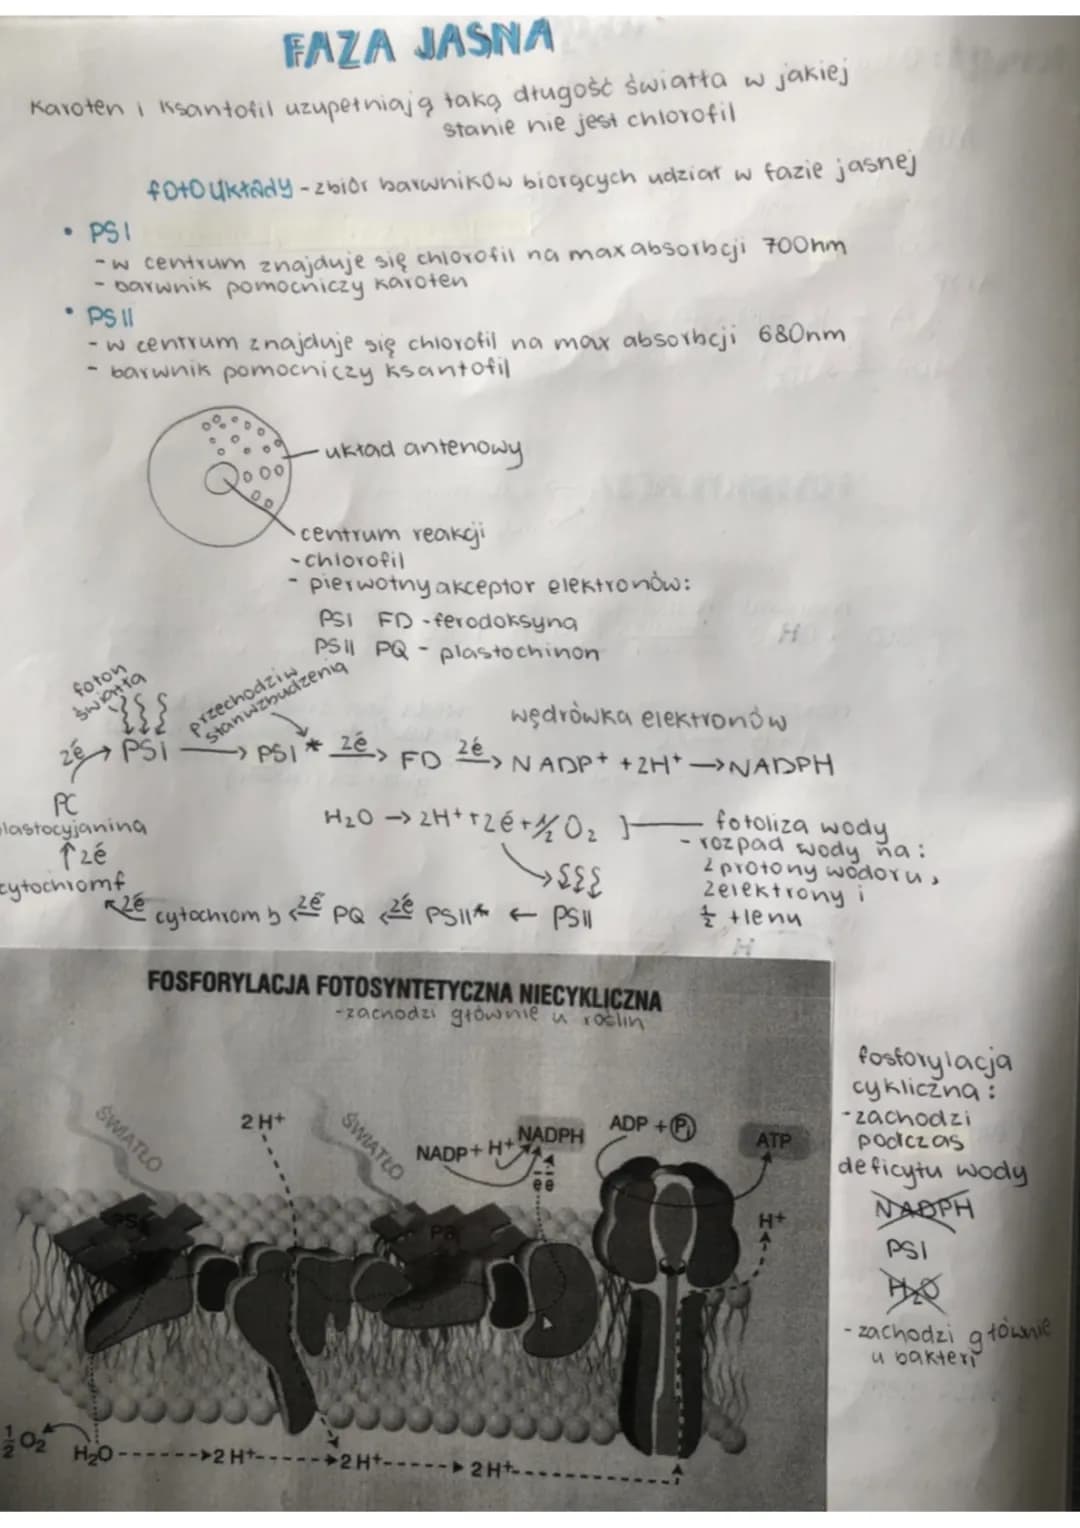 FAZA JASNA
Karoten i Ksantofil uzupełniają taką długość światła w jakiej
stanie nie jest chlorofil
fotoukłady - zbiór barwników biorących udział w fazie jasnej
• PSI
- w centrum znajduje się chlorofil na max absorbcji 700nm
- barwnik pomocniczy karoten
• PSII
- w centrum znajduje się chlorofil na max absorbcji 680nm
- barwnik pomocniczy ksantofil
układ antenowy
centrum reakcji
- chlorofil
- pierwotny akceptor elektronów:
PSI FD - ferodoksyna
PSII PQ - plastochinon
foton
światła
przechodzi w
stan wzbudzenia
wędrówka elektronów
2é → PSI → PSI* 2é→ FD 2é→ NADP+ +2H+ → NADPH
PC
plastocyjanina
↑2é
cytochrom f
H2O → 2H+ + 2é + 1/2 O2 } fotoliza wody
- rozpad wody na:
2 protony wodoru,
2 elektrony i
1/2 tlenu
2é cytochrom b ←2é PQ ←2é PSII* ← PSII
FOSFORYLACJA FOTOSYNTETYCZNA NIECYKLICZNA
- zachodzi głównie u roślin
ŚWIATŁO
2 H+
ŚWIATŁO
NADP+ H+
NADPH
ēē
ADP + Pi
ATP
H+
PS
1/2 O2
H2O ------→2 H+-----→2 H+-----→ 2 H+
fosforylacja
cykliczna:
- zachodzi
podczas
deficytu wody
NADPH
PSI
H2O
- zachodzi głównie
u bakterii